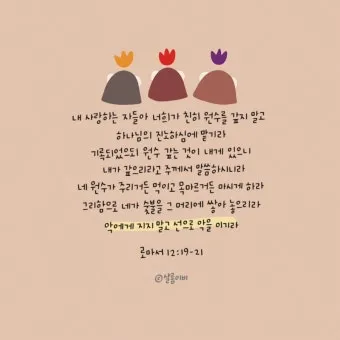 내 사랑하는 자들아 너희가 친히 원수를 갚지 말고
하나님의 진노하심에 맡기라
기록되었으되 원수 갚는 것이 내게 있으니
내가 갚으리라고 주께서 말씀하시니라
네 원수가 주리거든 먹이고 목마르거든 마시게 하라
그리함으로 네가 숯불을 그 머리에 쌓아 놓으리라
악에게 지지 말고 선으로 악을 이기라
로마서 12:19-21
@살롬이비